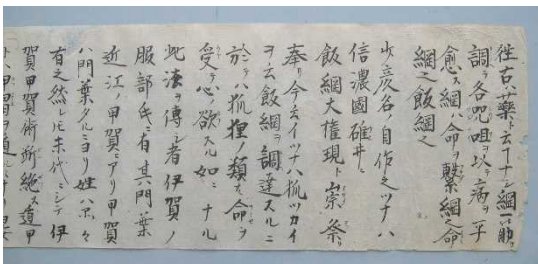 徃古ハ藥ト云コナシ綱一筋ヲ
調テ各咒咀ヲ以テ病ヲ平
愈ス綱ハ命ヲ繫綱之命
綱之飯綱之
少彦名自作之ツナハ
信濃國碓井ニ
飯綱大権現ト崇祭
奉リ今云イツナハ狐ツカイ
ヲ云飯綱ヲ調達スルニ
於テハ狐狸ノ類ヒ命ヲ
受テ心ノ欲スル如ニナル
此法ヲ傳シ者伊賀ノ
服部氏ニ有其門葉
近江ノ甲賀ニアリ甲賀
ハ門葉タルニヨリ姓ハ
有之然レ𪜈末代ニシテ伊
賀甲賀術断絶ス道甲